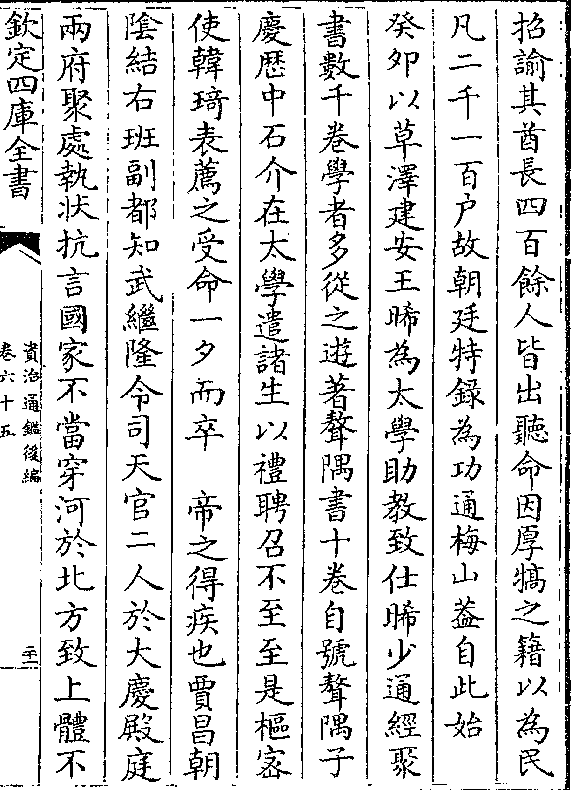 招諭其酋長四百餘人皆出聽命因厚犒之籍以為民
凡二千一百户故朝廷特錄為功通梅山葢自此始
癸卯以草澤建安王晞為太學助教致仕晞少通經聚
書數千卷學者多從之遊著聱隅書十卷自號聱隅子
慶歴中石介在太學遣諸生以禮聘召不至至是樞宻
使韓琦表薦之受命一夕而卒　帝之得疾也賈昌朝
隂結右班副都知武繼隆令司天官二人於大慶殿庭
兩府聚處執狀抗言國家不當穿河於北方致上體不
欽定四庫全書
資治通鑑後編
卷六十五